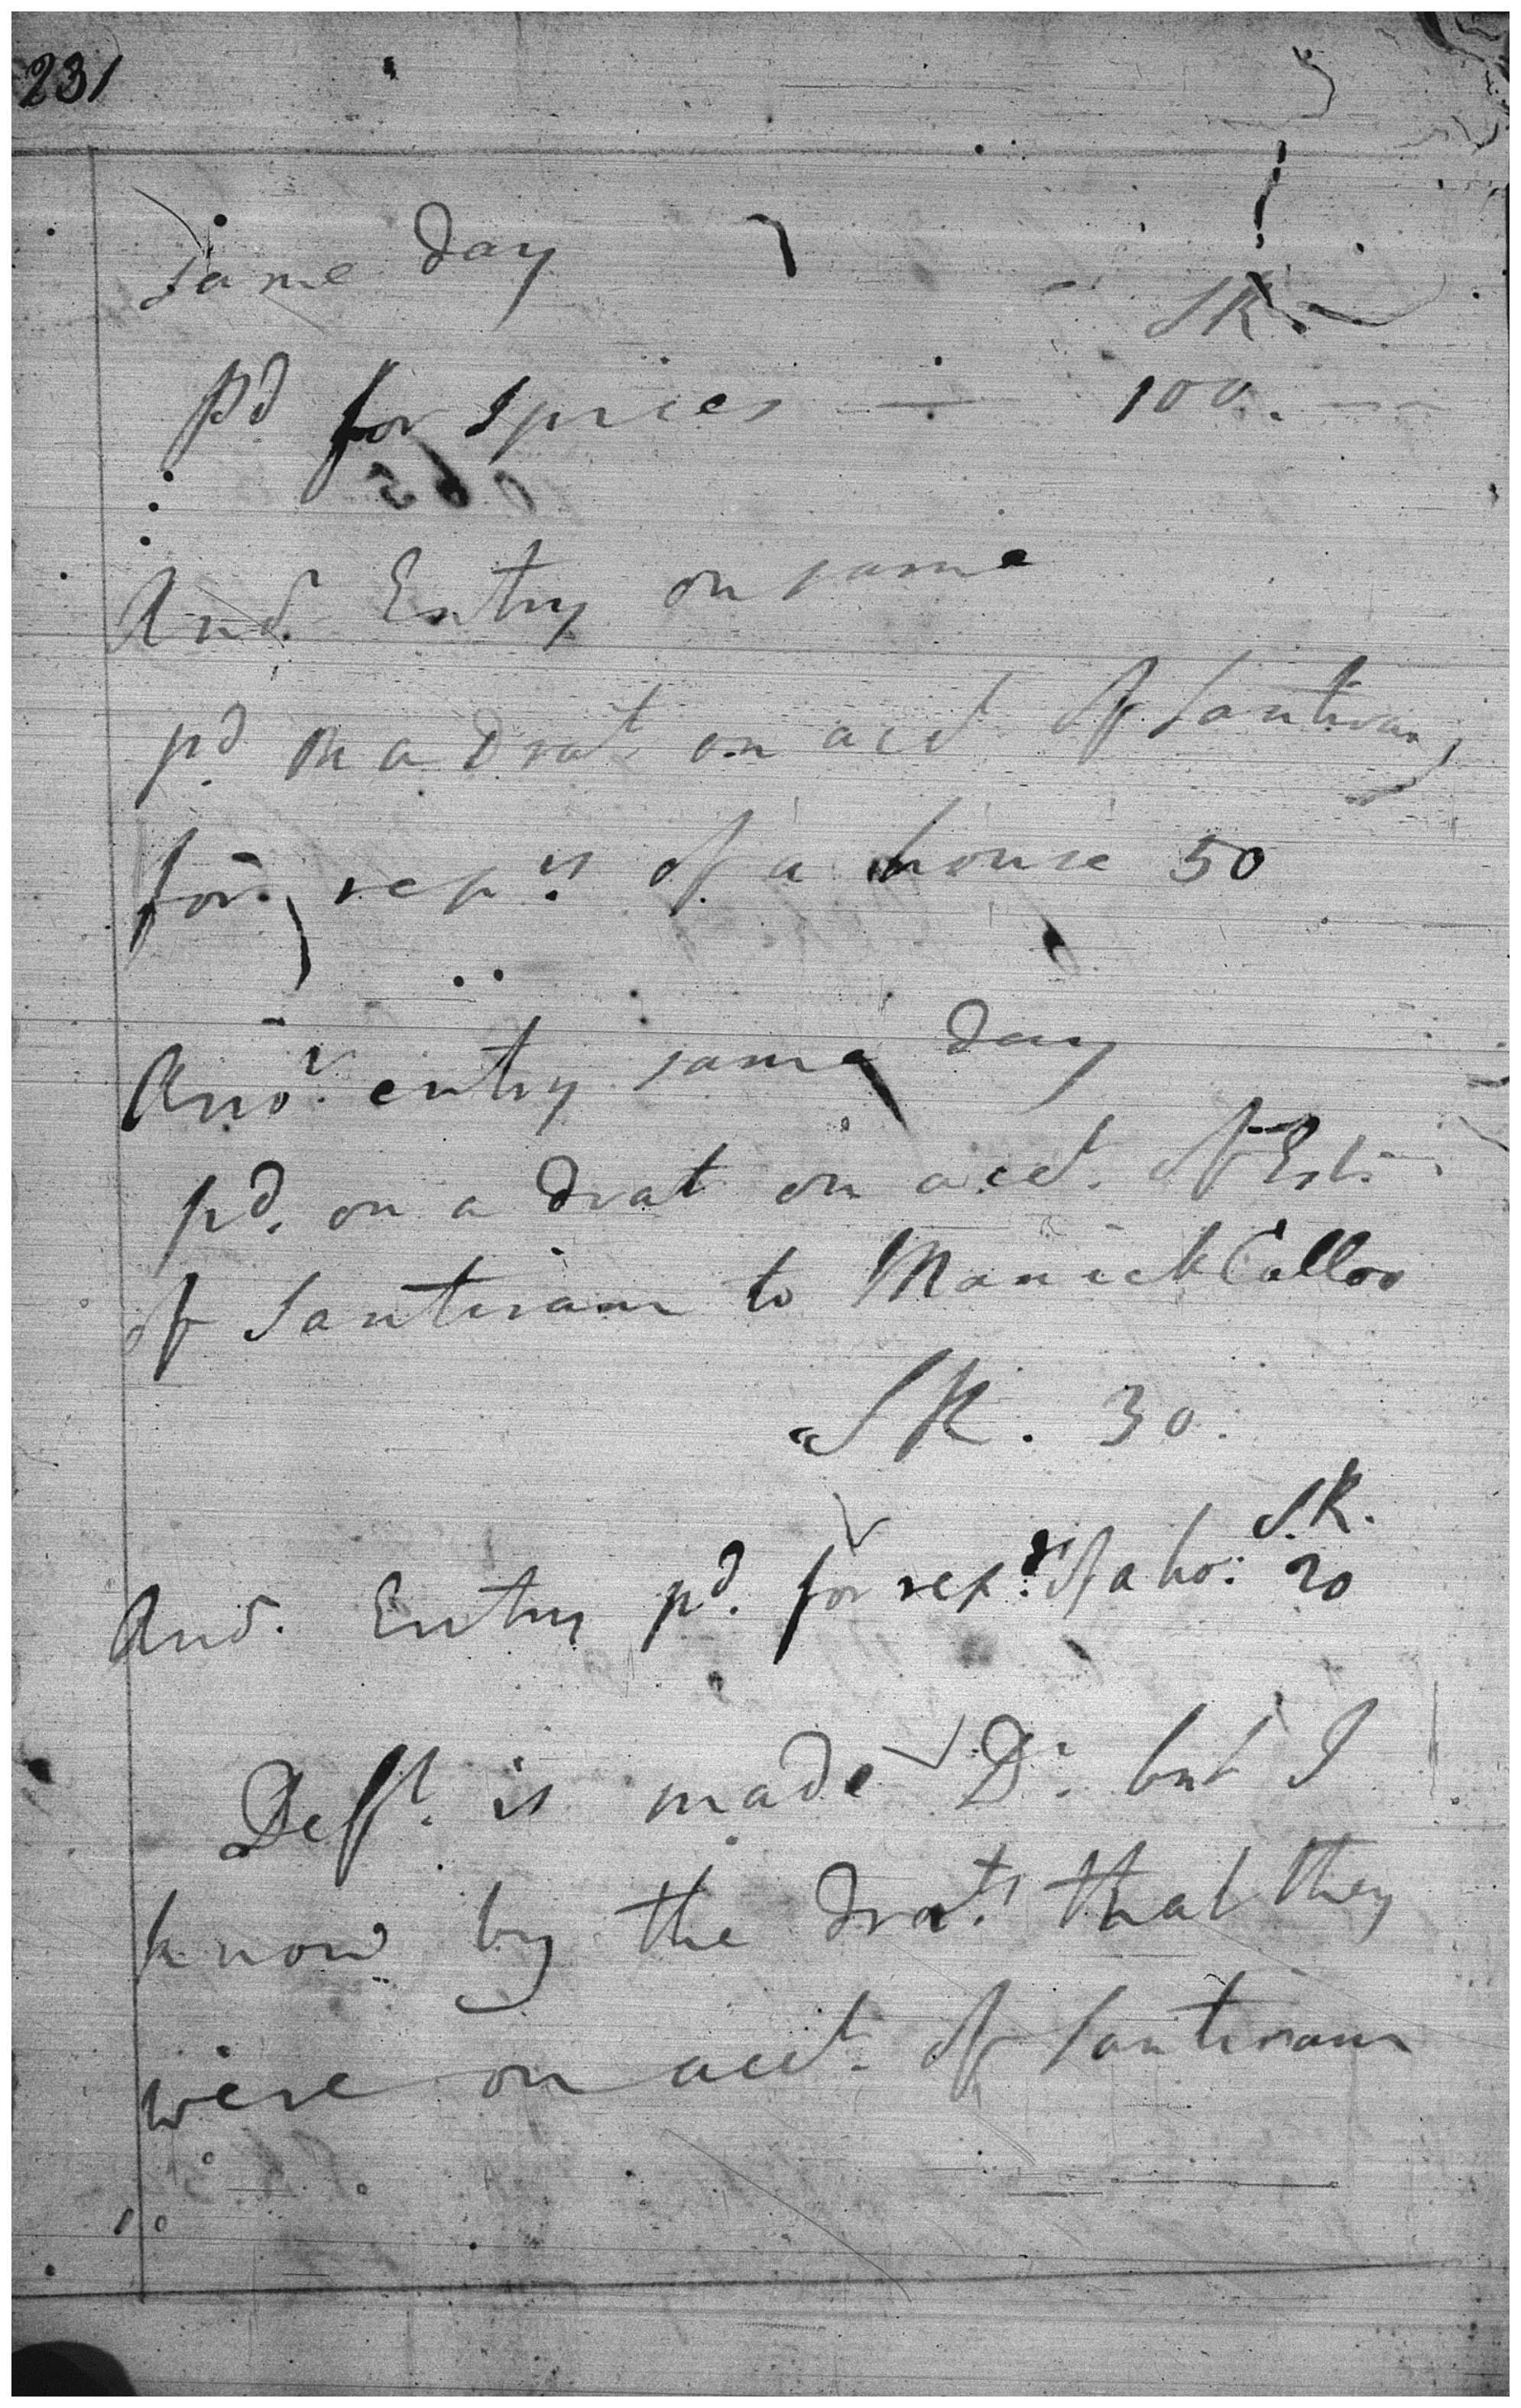 231
same day
SR.
Pd for spices — 100. —
Ano. Entry on same
pd on a Drat on acct. of Santiram
for reprs of a house 50
Anor. entry same day
pd. on a drat on acct. of Est.
of Santiram to Manick Colloo
SR. 30.
S.R.
Ano. Entry pd. for repr. of a ho: 20
Defft. is made Dr. but I
know by the drats that they
were on acct. of Santiram